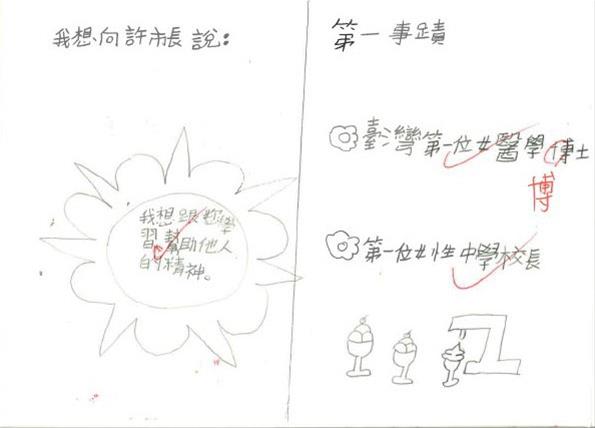 我想向許市長說：
我想跟您學
習幫助他人
的精神。
第一事蹟
臺灣第一位女醫學博士
博
第一位女性中學校長